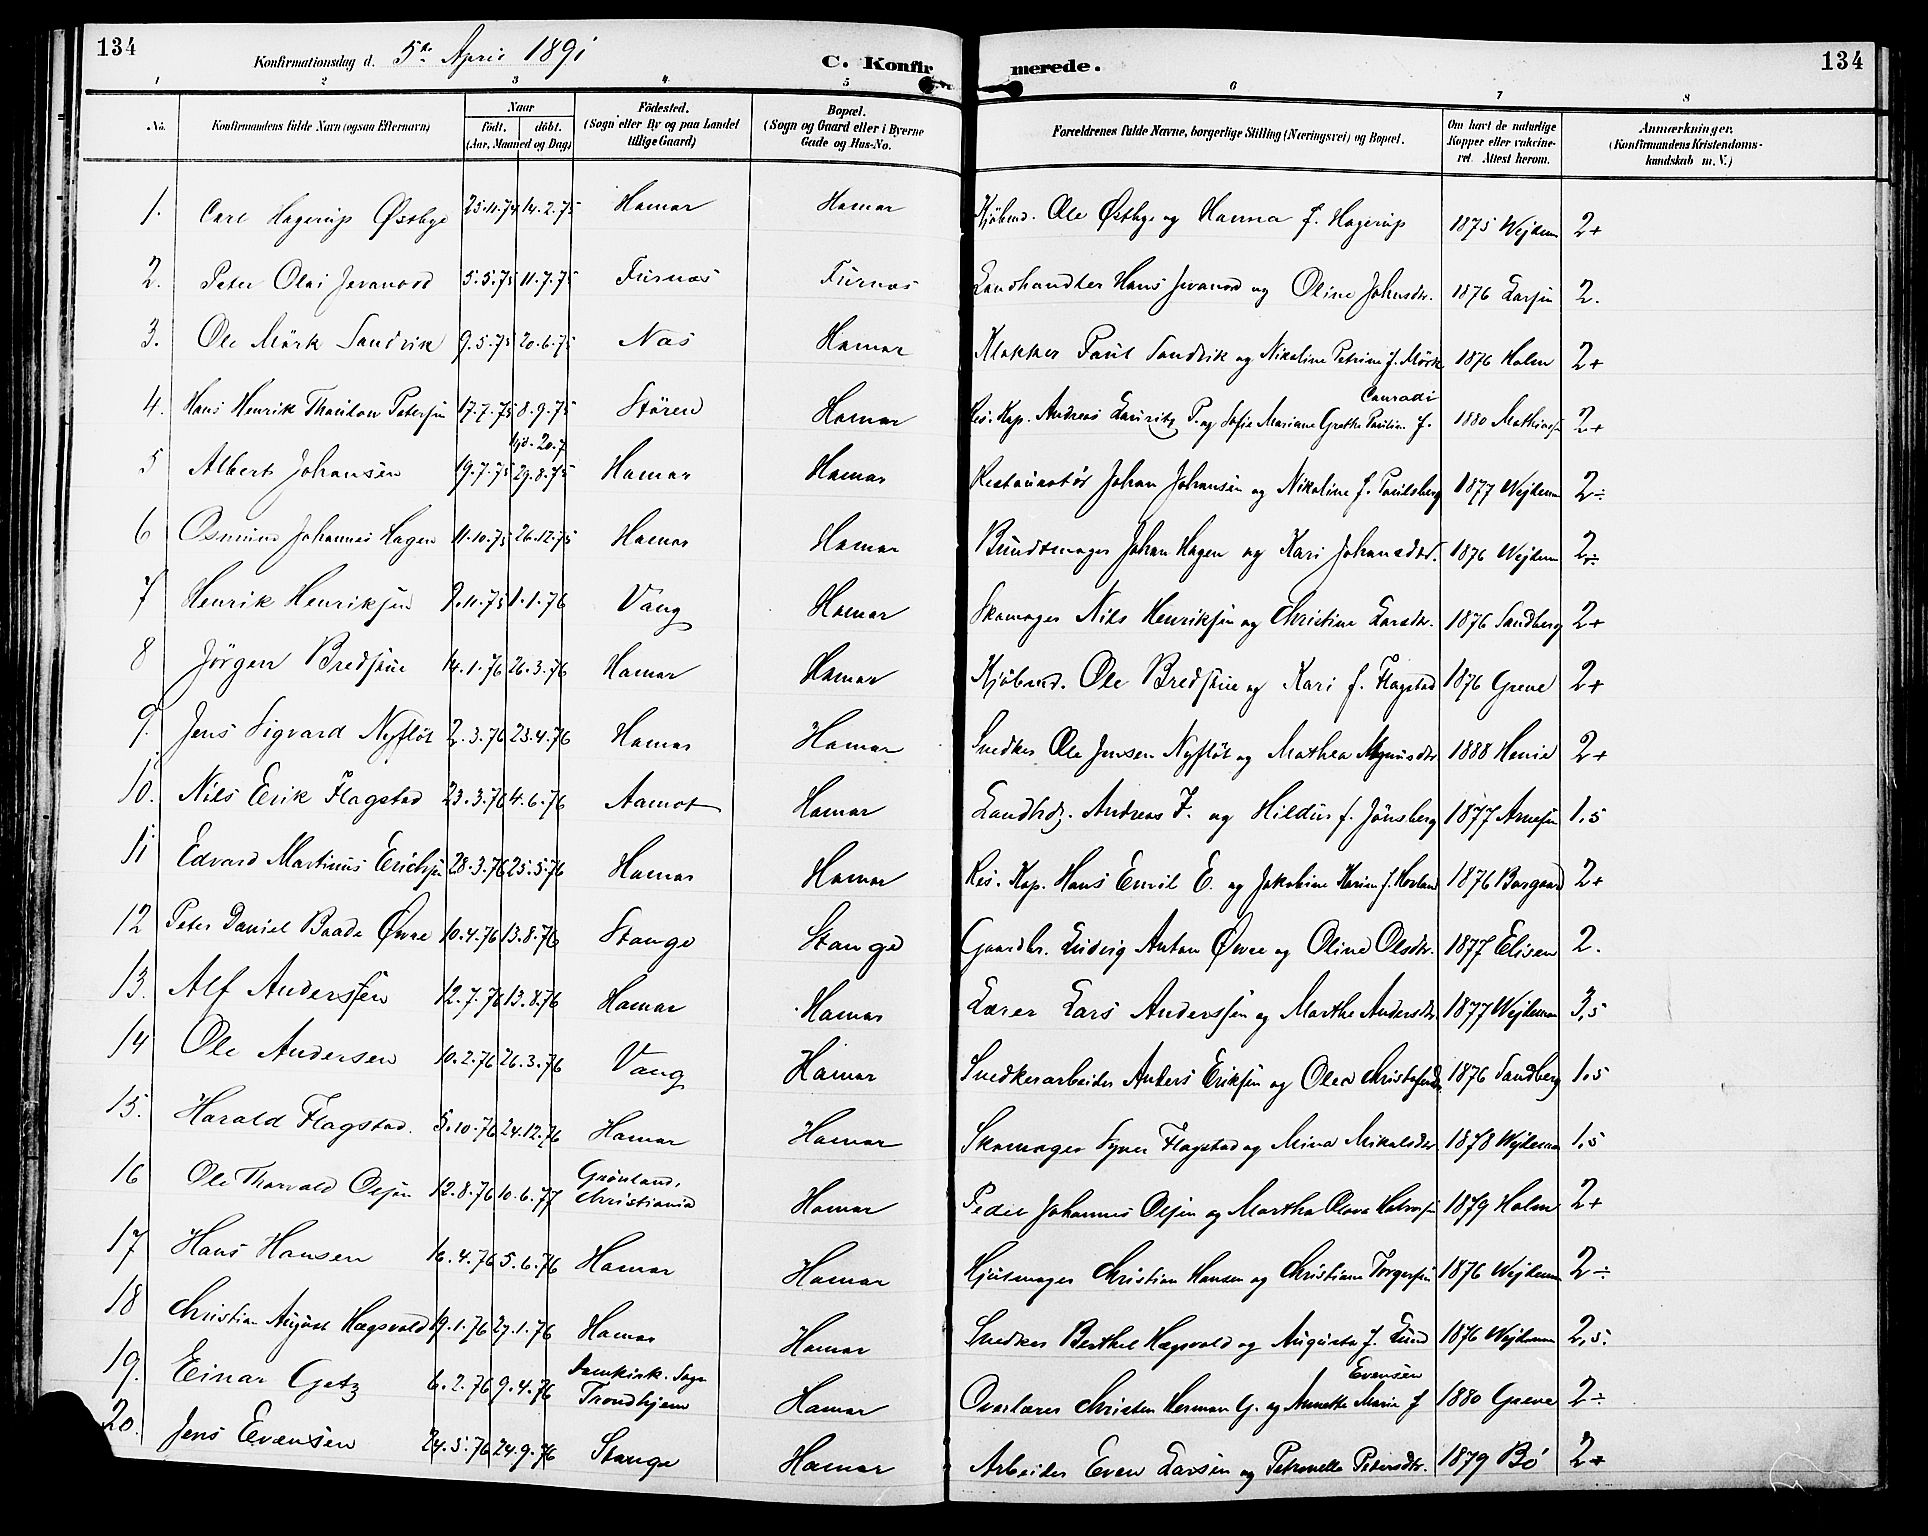 134
Konfirmationsdag d. 5te April 1891
C. Konfirmerede.
134
1 2 3 4 5 6 7 8
No. Konfirmandens fulde Navn (ogsaa Efternavn) Naar födt. döbt. (Aar, Maaned og Dag) Födested. (Sogn eller By og paa Landet tillige Gaard) Bopæl. (Sogn og Gaard eller i Byerne Gade og Hus-No. Forældrenes fulde Navne, borgerlige Stilling (Næringsvei) og Bopæl. Om havt de naturlige Kopper eller vakcineret. Attest herom. Anmærkninger. (Konfirmandens Kristendomskundskab m. V.)
1. Carl Hagerup Østbye 25.11.74 14.2.75 Hamar Hamar Kjöbmd. Ole Østbye og Hanna f. Hagerup 1875 Wejdem 2+
2. Peter Olai Jevanord 5.5.75 11.7.75 Furnæs Furnæs Landhandler Hans Jevanord og Oline Johnsdtr. 1876 Larsen 2.
3. Ole Mörk Sandvik 9.5.75 20.6.75 Næs Hamar Klokker Paul Sandvik og Nikoline Petrine f. Mörk 1876 Holm 2+
4. Hans Henrik Thaulow Petersen 17.7.75 8.9.75 Stören Hamar Res. Kap. Andreas Lauritz P. og Sofie Mariane Grethe Pauline f. Conradi 1880 Mathiesen 2+
5 Albert Johansen 19.7.75 hjd. 20.7 29.8.75 Hamar Hamar Restauratör Johan Johansen og Nikoline f. Paulsberg 1877 Wejdem 2÷
6 Osmund Johannes Hagen 11.10.75 26.12.75 Hamar Hamar Bundtmager Johan Hagen og Kari Johansdtr. 1876 Wejdem 2÷
7 Henrik Henriksen 9.11.75 1.1.76 Vang Hamar Skomager Nils Henriksen og Christine Larsdtr. 1876 Sandberg 2+
8 Jörgen Bredstue 14.1.76 26.3.76 Hamar Hamar Kjöbmd. Ole Bredstue og Kari f. Flagstad 1876 Greve 2+
9. Jens Sigvard Nyflöt 2.3.76 23.4.76 Hamar Hamar Snedker Ole Jensen Nyflöt og Mathea Magnusdtr 1888 Henie 2+
10. Nils Erik Flagstad 23.3.76 4.6.76 Aamot Hamar Landhdl. Andreas F. og Hildur f. Jönsberg 1877 Arnesen 1,5
11 Edvard Martinus Erichsen 28.3.76 25.5.76 Hamar Hamar Res. Kap. Hans Emil E. og Jakobine Karine f. Hovland 1876 Borgaard 2+
12 Peter Daniel Baade Øvre 10.4.76 13.8.76 Stange Stange Gaardbr. Ludvig Anton Øvre og Oline Olsdtr. 1877 Elisen 2.
13. Alf Anderssen 12.7.76 13.8.76 Hamar Hamar Lærer Lars Anderssen og Marthe Andersdtr. 1877 Wejdeman 3,5
14 Ole Andersen 10.2.76 26.3.76 Vang Hamar Snedkerarbeider Anders Eriksen og Olea Christofersdtr 1876 Sandberg 1,5
15. Harald Flagstad. 5.10.76 24.12.76 Hamar Hamar Skomager Syver Flagstad og Mina Mikalsdtr 1878 Wejdeman 1,5
16 Ole Thorvald Olsen 12.8.76 10.6.77 Grønland, Christiania Hamar Peder Johannes Olsen og Martha Olava Halvorsen 1879 Holm 2+
17 Hans Hansen 16.4.76 5.6.76 Hamar Hamar Hjulmager Christian Hansen og Christiane Torgersen 1876 Wejdem 2÷
18 Christian August Hægsvold 19.1.76 27.1.76 Hamar Hamar Snedker Berthel Hægsvold og Augusta f. Lund 1876 Wejdeman 2,5.
19. Einar Getz 6.2.76 9.4.76 Domkirk. Sogn Trondhjem Hamar Overlærer Christen Herman G. og Annette Marie f Evensen 1880 Greve 2÷
20. Jens Evensen 24.5.76 24.9.76 Stange Hamar Arbeider Even Larsen og Petronelle Petersdtr. 1879 Bö 2+